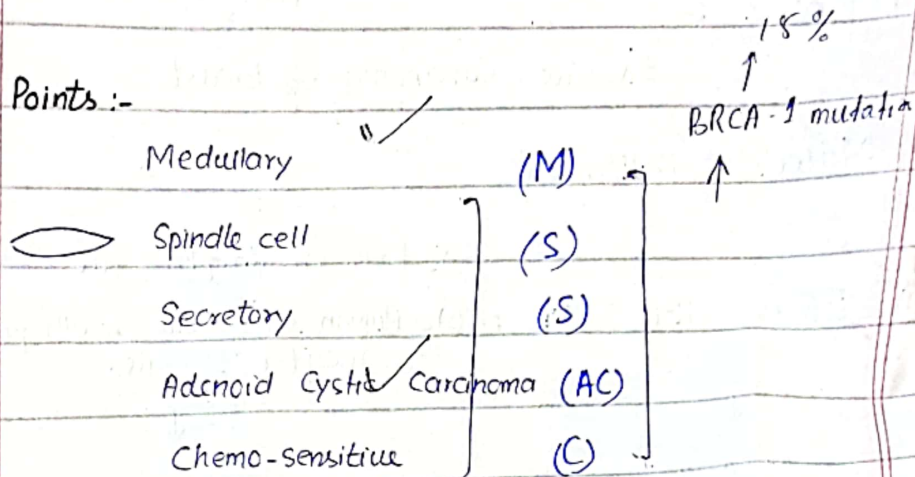 18%
↑
Points :-
BRCA-1 mutation
Medullary (M) ↑
Spindle cell (S)
Secretory (S)
Adenoid Cystic Carcinoma (AC)
Chemo-sensitive (C)